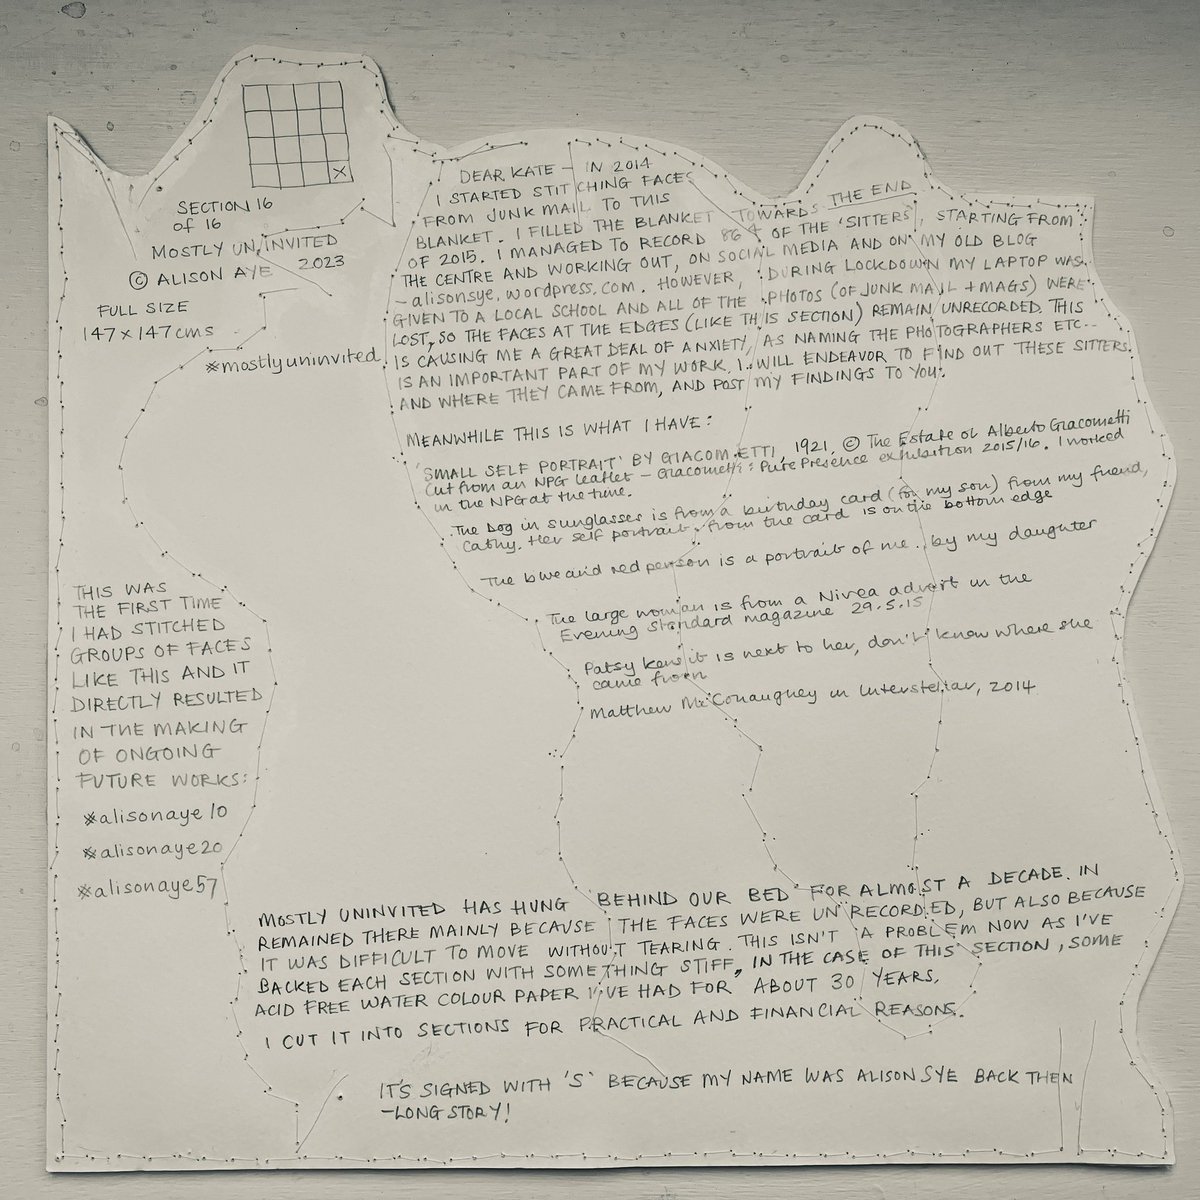 X
SECTION 16
of 16
MOSTLY UN,INVITED
© ALISON AYE 2023
FULL SIZE
147 x 147 cms
#mostlyuninvited
DEAR KATE - IN 2014
I STARTED STITCHING FACES
FROM JUNK MAIL TO THIS
BLANKET. I FILLED THE BLANKET TOWARDS THE END
OF 2015. I MANAGED TO RECORD 864 OF THE 'SITTERS', STARTING FROM
THE CENTRE AND WORKING OUT, ON SOCIAL MEDIA AND ON MY OLD BLOG
- alisonsye.wordpress.com. HOWEVER, DURING LOCKDOWN MY LAPTOP WAS
GIVEN TO A LOCAL SCHOOL AND ALL OF THE PHOTOS (OF JUNK MAIL + MAGS) WERE
LOST, SO THE FACES AT THE EDGES (LIKE THIS SECTION) REMAIN UNRECORDED. THIS
IS CAUSING ME A GREAT DEAL OF ANXIETY, AS NAMING THE PHOTOGRAPHERS ETC--
IS AN IMPORTANT PART OF MY WORK. I WILL ENDEAVOR TO FIND OUT THESE SITTERS.
AND WHERE THEY CAME FROM, AND POST MY FINDINGS TO YOU.
MEANWHILE THIS IS WHAT I HAVE:
'SMALL SELF PORTRAIT' BY GIACOMETTI, 1921. © The Estate of Alberto Giacometti
Cut from an NPG leaflet - Giacometti: Pure Presence exhibition 2015/16. I worked
in the NPG at the time.
The Dog in sunglasses is from a birthday card (for my son) from my friend,
Cathy. Her self portrait from the card is on the bottom edge
The blue and red person is a portrait of me by my daughter
The large woman is from a Nivea advert in the
Evening Standard magazine 29.5.15
Patsy Kensit is next to her, don't know where she
came from
Matthew McConaughey in Interstellar, 2014
THIS WAS
THE FIRST TIME
I HAD STITCHED
GROUPS OF FACES
LIKE THIS AND IT
DIRECTLY RESULTED
IN THE MAKING
OF ONGOING
FUTURE WORKS:
#alisonaye10
#alisonaye20
#alisonaye57
MOSTLY UNINVITED HAS HUNG BEHIND OUR BED FOR ALMOST A DECADE. IN
REMAINED THERE MAINLY BECAUSE THE FACES WERE UNRECORDED, BUT ALSO BECAUSE
IT WAS DIFFICULT TO MOVE WITHOUT TEARING. THIS ISN'T A PROBLEM NOW AS I'VE
BACKED EACH SECTION WITH SOMETHING STIFF, IN THE CASE OF THIS SECTION, SOME
ACID FREE WATER COLOUR PAPER I'VE HAD FOR ABOUT 30 YEARS.
I CUT IT INTO SECTIONS FOR PRACTICAL AND FINANCIAL REASONS.
IT'S SIGNED WITH 'S' BECAUSE MY NAME WAS ALISON SYE BACK THEN
-LONG STORY!